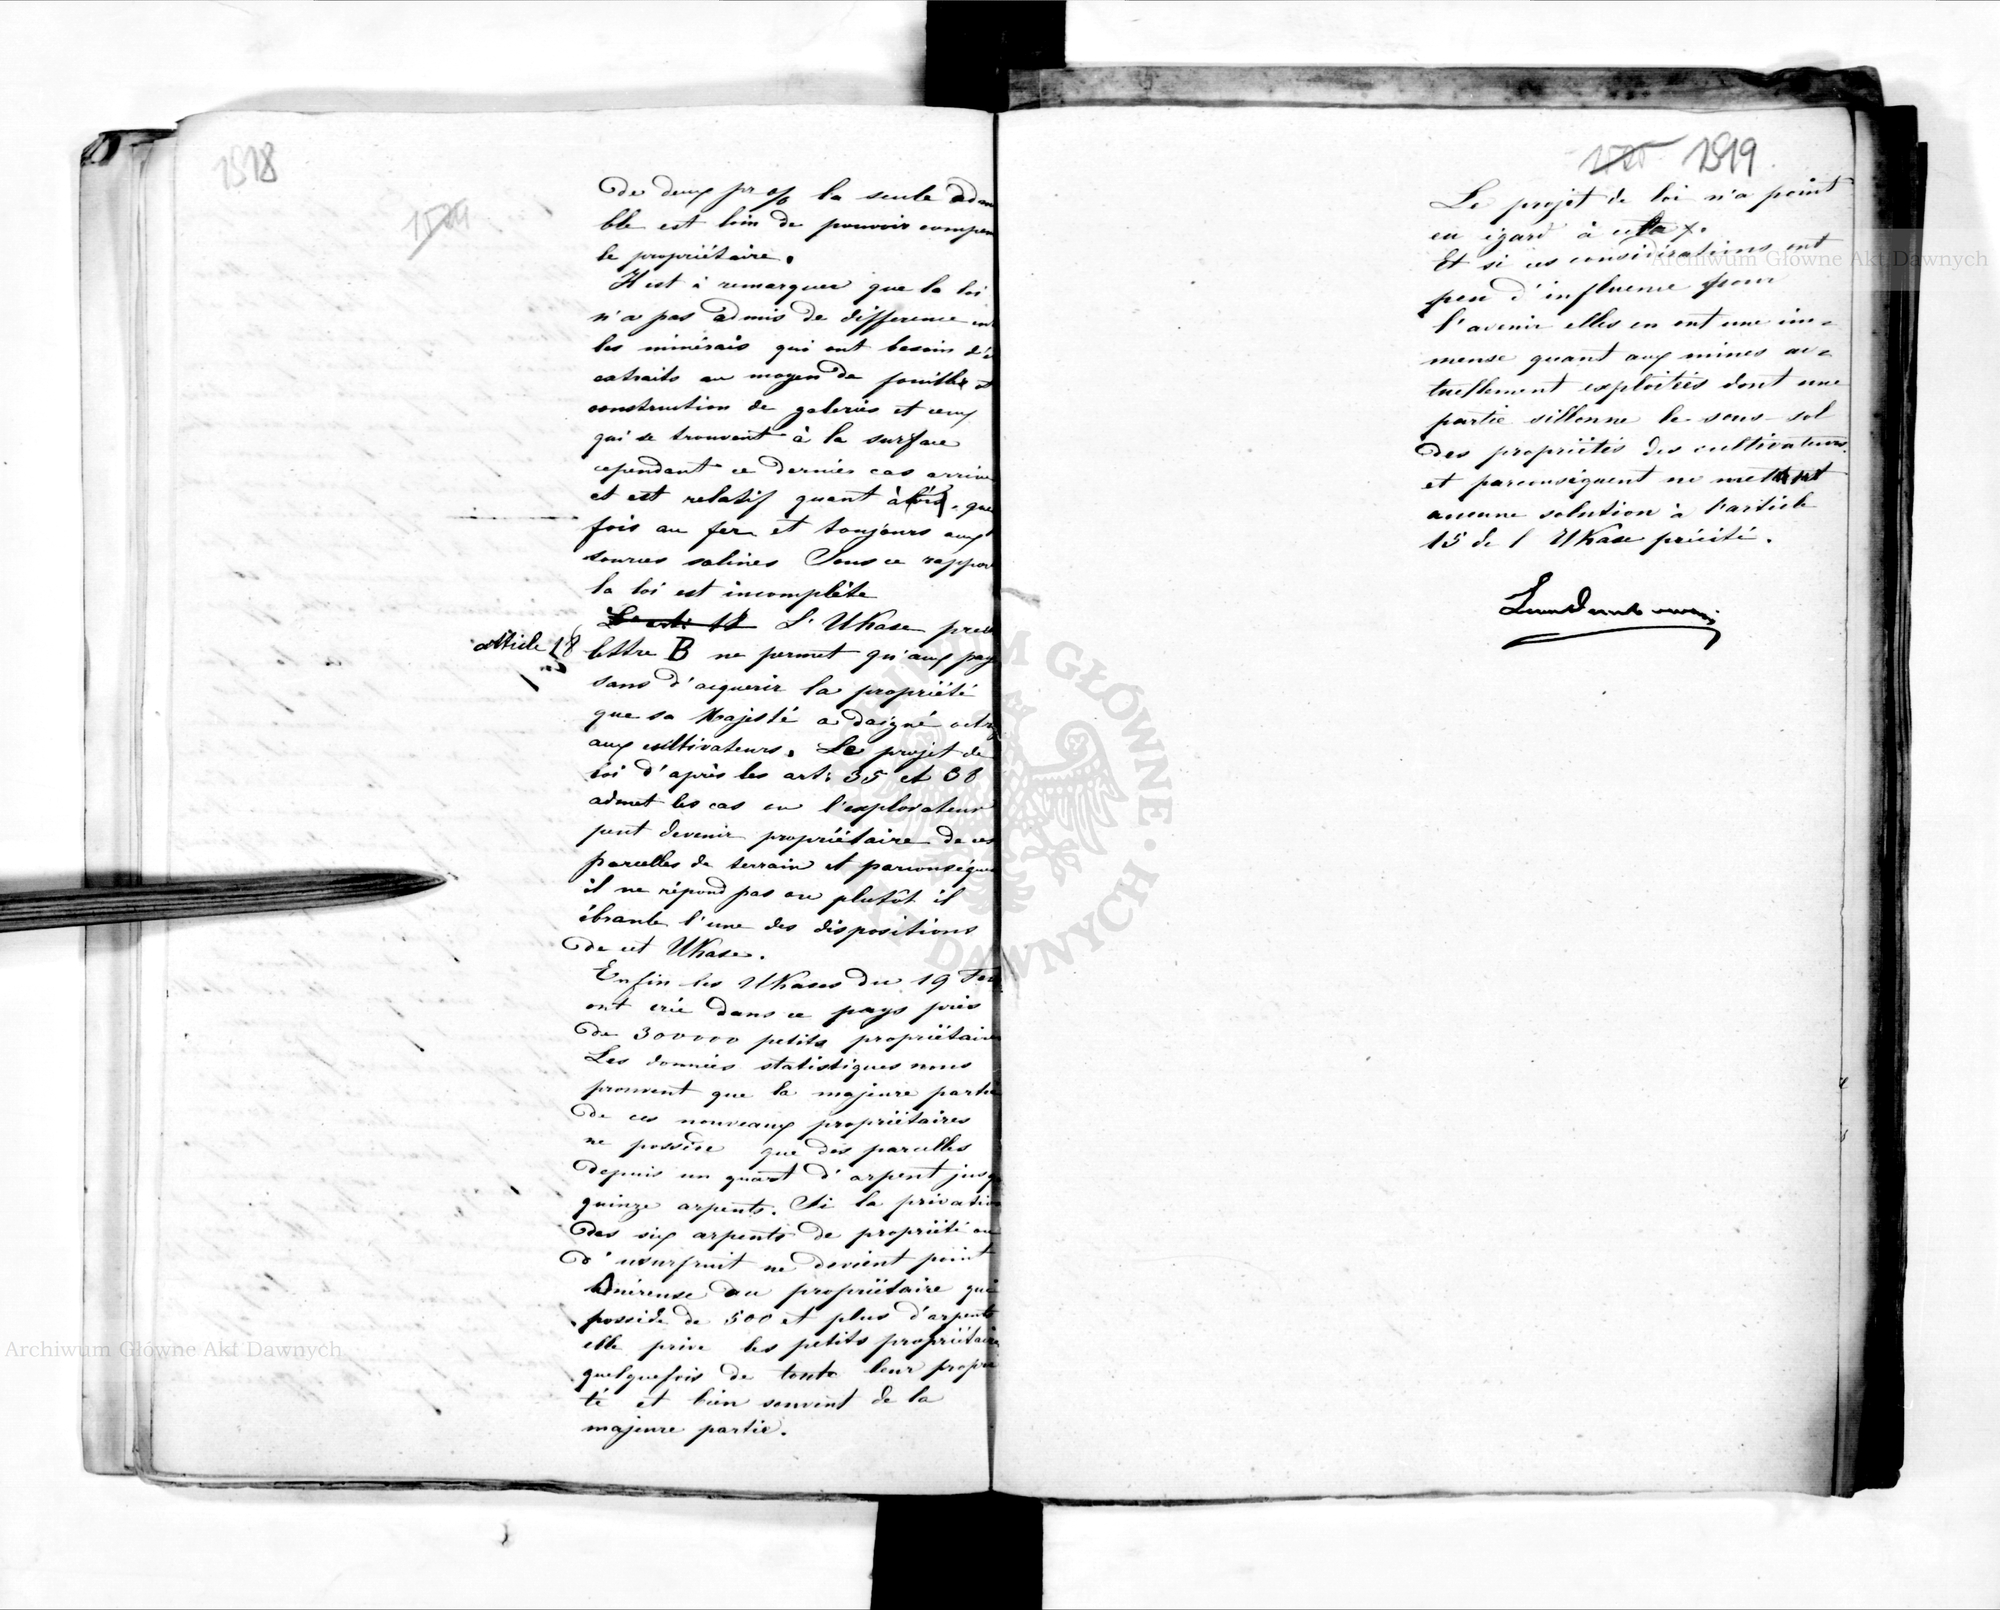 1518
de deux pr % la seule adm
ble est loin de pouvoir compen
le propriétaire.
Il est à remarquer que la loi
n'a pas admis de différence en
les minérais qui ont besoin d'ê
extraits au moyen de fouilles et
construction de galeries et ceux
qui se trouvent à la surface
cependant ce dernier cas arrive
et est relatif quant à , que
fois au fer et toujours aux
sources salines Sous ce rappor
la loi est incomplète
L'art: 18 L'Ukase préci
article 18
lettre B ne permet qu'aux pay
sans d'acquerir la propriété
que sa Majesté a daigné octro
aux cultivateurs. Le projet de
loi d'après les art: 35 et 38
admet les cas ou l'explorateur
peut devenir propriétaire de ces
parcelles de terrain et parconséque
il ne répond pas ou plutôt il
ébranle l'une des dispositions
de cet Ukase.
Enfin les Ukases du 19 Fev
ont crée dans ce pays près
de 300000 petits propriétaires
Les données statistiques nous
prouvent que la majeure partie
de ces nouveaux propriétaires
ne possède que des parcelles
depuis un quart d'arpent jusq
quinze arpents. Si la privation
des six arpents de propriété ou
d'usufruit ne devient point
onéreuse au propriétaire qui
possède de 500 et plus d'arpents
elle prive les petits propriétaires
quelquefois de toute leur proprié
té et bien souvent de la
majeure partie.
1519
Le projet de loi n'a point
eu égard à cela.
Et si ces considérations ont
peu d'influence pour
l'avenir elles en ont une im=
mense quant aux mines ac=
tuellement exploitées dont une
partie sillonne le sous-sol
des propriétés des cultivateurs.
et parconséquent ne met
aucune solution à l'article
15 de l'Ukase précité.
Archiwum Główne Akt Dawnych
Archiwum Główne Akt Dawnych
ARCHIWUM GŁÓWNE AKT DAWNYCH